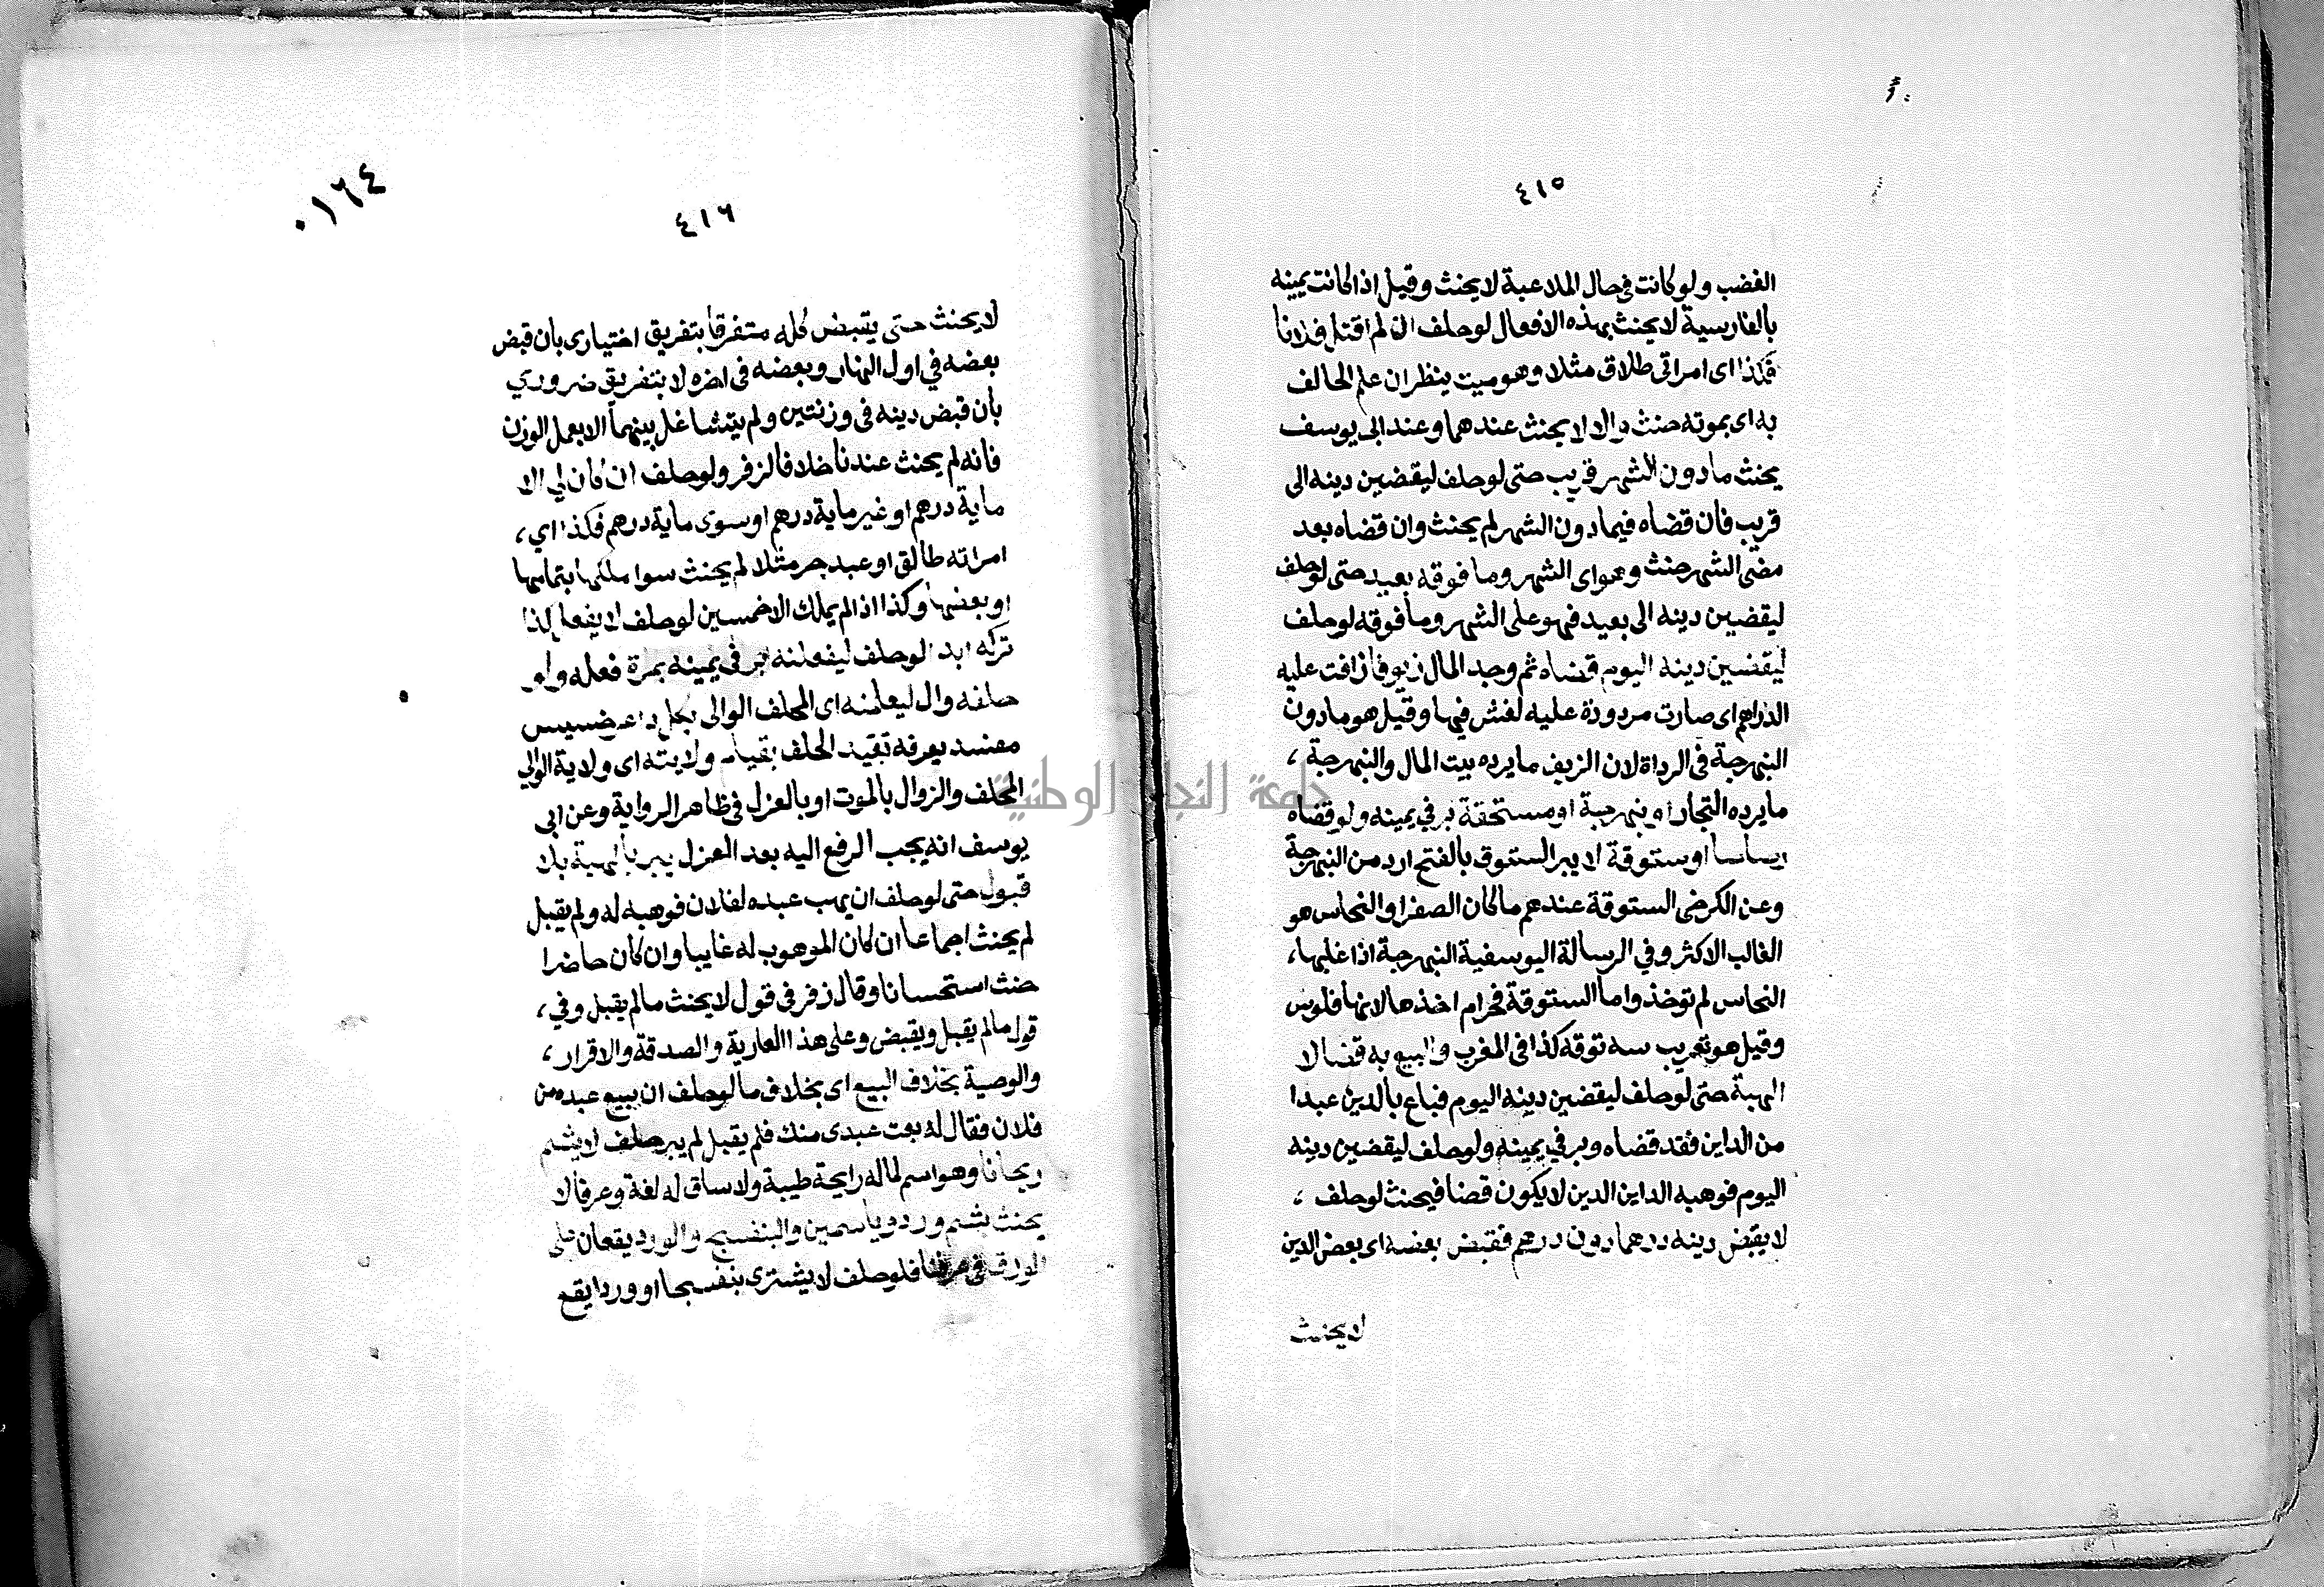 ٤١٥
الغضب ولو كانت في حال الملاعبة لا يحنث وقيل اذا كانت يمينه
بالفارسية لا يحنث بهذه الافعال لو حلف ان لم اقتل فلانا
فكذا اى امراتى طلاق مثلا وهو ميت ينظر ان علم الحالف
به اى بموته حنث والا لا يحنث عندهما وعند ابى يوسف
يحنث ما دون الشهر قريب حتى لو حلف ليقضين دينه الى
قريب فان قضاه فيما دون الشهر لم يحنث وان قضاه بعد
مضى الشهر حنث وهو اى الشهر وما فوقه بعيد حتى لو حلف
ليقضين دينه الى بعيد فهو على الشهر وما فوقه لو حلف
ليقضين دينه اليوم قضاه ثم وجد المال زيوفا زافت عليه
الدراهم اى صارت مردودة عليه لغش فيها وقيل هو ما دون
النبهرجة في الرداة لان الزيف ما يرده بيت المال والنبهرجة ،
ما يرده التجار او نبهرجة او مستحقة بر في يمينه ولو قضاه
رساسا او ستوقة لا يبر الستوق بالفتح ارد من النبهرجة
وعن الكرخى الستوقة عندهم ما كان الصفر او النحاس هو
الغالب الاكثر وفي الرسالة اليوسفية النبهرجة اذا غلبها ،
النحاس لم توخذ واما الستوقة فحرام اخذها لانها فلوس
وقيل هو تعريب سه توقه كذا فى المغرب والبيع به قضا لا
الهبة حتى لو حلف ليقضين دينه اليوم فباع بالدين عبدا
من الداين فقد قضاه وبر في يمينه ولو حلف ليقضين دينه
اليوم فوهبه الداين الدين لا يكون قضا فيحنث لو حلف ،
لا يقبض دينه درهما دون درهم فقبض بعضه اى بعض الدين
لا يحنث
٠١٦٤
٤١٦
لا يحنث حتى يقبض كله متفرقا بتفريق اختيارى بان قبض
بعضه في اول النهار وبعضه فى اخره لا بتفريق ضروري
بان قبض دينه فى وزنتين ولم يتشاغل بينهما الا بعمل الوزن
فانه لم يحنث عندنا خلافا لزفر ولو حلف ان كان لي الا
ماية درهم او غير ماية درهم او سوى ماية درهم فكذا اي ،
امراته طالق او عبد حر مثلا لم يحنث سوا ملكها بتمامها
او بعضها وكذا اذا لم يملك الا خمسين لو حلف لا يفعل كذا
تركه ابدا لو حلف ليفعلنه بر فى يمينه بمرة فعله ولو
حلفه وال ليعلمنه اى المحلف الوالى بكل داعر خسيس
مفسد يعرفه تقيد الحلف بقيام ولايته اى ولاية الوالي
المحلف والزوال بالموت او بالعزل فى ظاهر الرواية وعن ابى
يوسف انه يجب الرفع اليه بعد العزل يبر بالهبة بلا
قبول حتى لو حلف ان يهب عبده لفلان فوهبه له ولم يقبل
لم يحنث اجماعا ان كان الموهوب له غايبا وان كان حاضرا
حنث استحسانا وقال زفر فى قول لا يحنث ما لم يقبل وفي ،
قول ما لم يقبل ويقبض وعلى هذا العارية والصدقة والاقرار ،
والوصية بخلاف البيع اى بخلاف ما لو حلف ان يبيع عبده من
فلان فقال له بعت عبدى منك فلم يقبل لم يبر حلف لا يشم
ريحانا وهو اسم لما له رايحة طيبة ولا ساق له لغة وعرفا لا
يحنث بشم ورد وياسمين والبنفسج والورد يقعان على
الورق فى عرفنا فلو حلف لا يشترى بنفسجا او وردا يقع
جامعة النجاح الوطنية